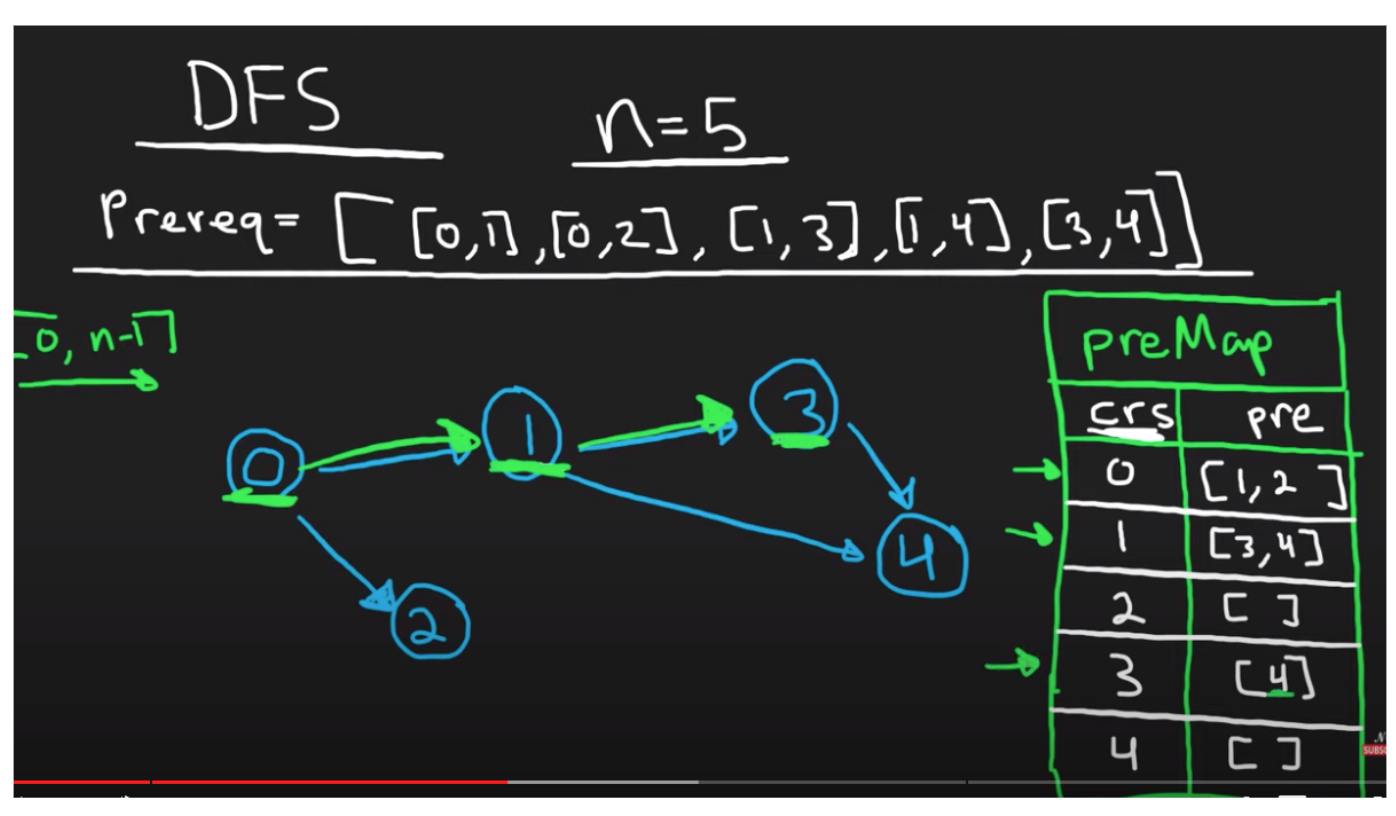 DFS
n=5
Prereq= [ [0,1],[0,2], [1,3],[1,4],[3,4]]
[0, n-1]
preMap
crs pre
0 [1,2 ]
1 [3,4]
2 [ ]
3 [4]
4 [ ]
0
1
3
4
2